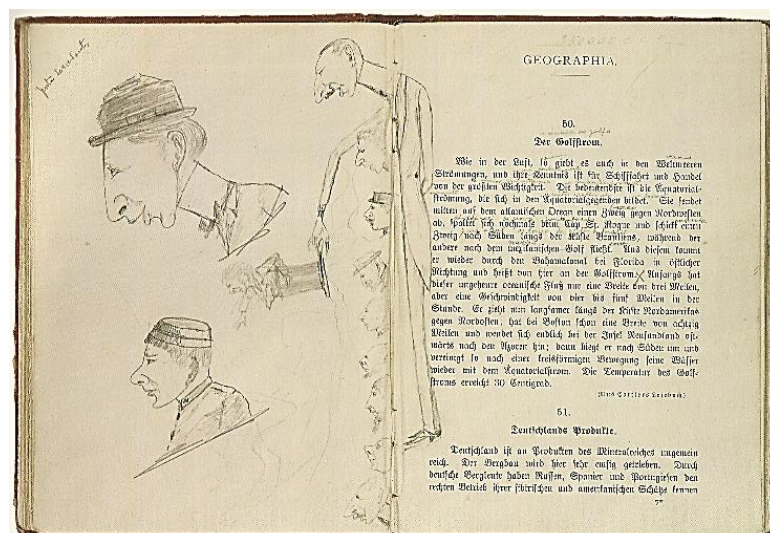 GEOGRAPHIA.
50.
Der Golfstrom.
Wie in der Luft, so giebt es auch in den Weltmeeren
Strömungen, und ihre Kenntnis ist für Schiffahrt und Handel
von der größten Wichtigkeit. Die bedeutendste ist die Äquatorial-
strömung, die sich in den Äquatorialgegenden bildet. Sie sendet
mitten auf dem atlantischen Ocean einen Zweig gegen Nordwesten
ab, spaltet sich nochmals beim Cap St. Roque und schickt einen
Zweig nach Süden längs der Küste Brasiliens, während der
andere nach dem mexikanischen Golf fließt. Aus diesem kommt
er wieder durch den Bahamakanal bei Florida in östlicher
Richtung und heißt von hier an der Golfstrom. Anfangs hat
dieser ungeheure oceanische Fluß nur eine Breite von drei Meilen,
aber eine Geschwindigkeit von vier bis fünf Meilen in der
Stunde. Er zieht nun langsamer längs der Küste Nordamerikas
gegen Nordosten, hat bei Boston schon eine Breite von achtzig
Meilen und wendet sich endlich bei der Insel Neufundland ost-
wärts nach den Azoren hin; dann biegt er nach Süden um und
vereinigt so nach einer kreisförmigen Bewegung seine Wässer
wieder mit dem Äquatorialstrom. Die Temperatur des Golf-
stroms erreicht 30 Centigrad.
51.
Deutschlands Produkte.
Deutschland ist an Produkten des Mineralreiches ungemein
reich. Der Bergbau wird hier sehr emsig getrieben. Durch
deutsche Bergleute haben Russen, Spanier und Portugiesen den
rechten Betrieb ihrer sibirischen und amerikanischen Schätze kennen
7*